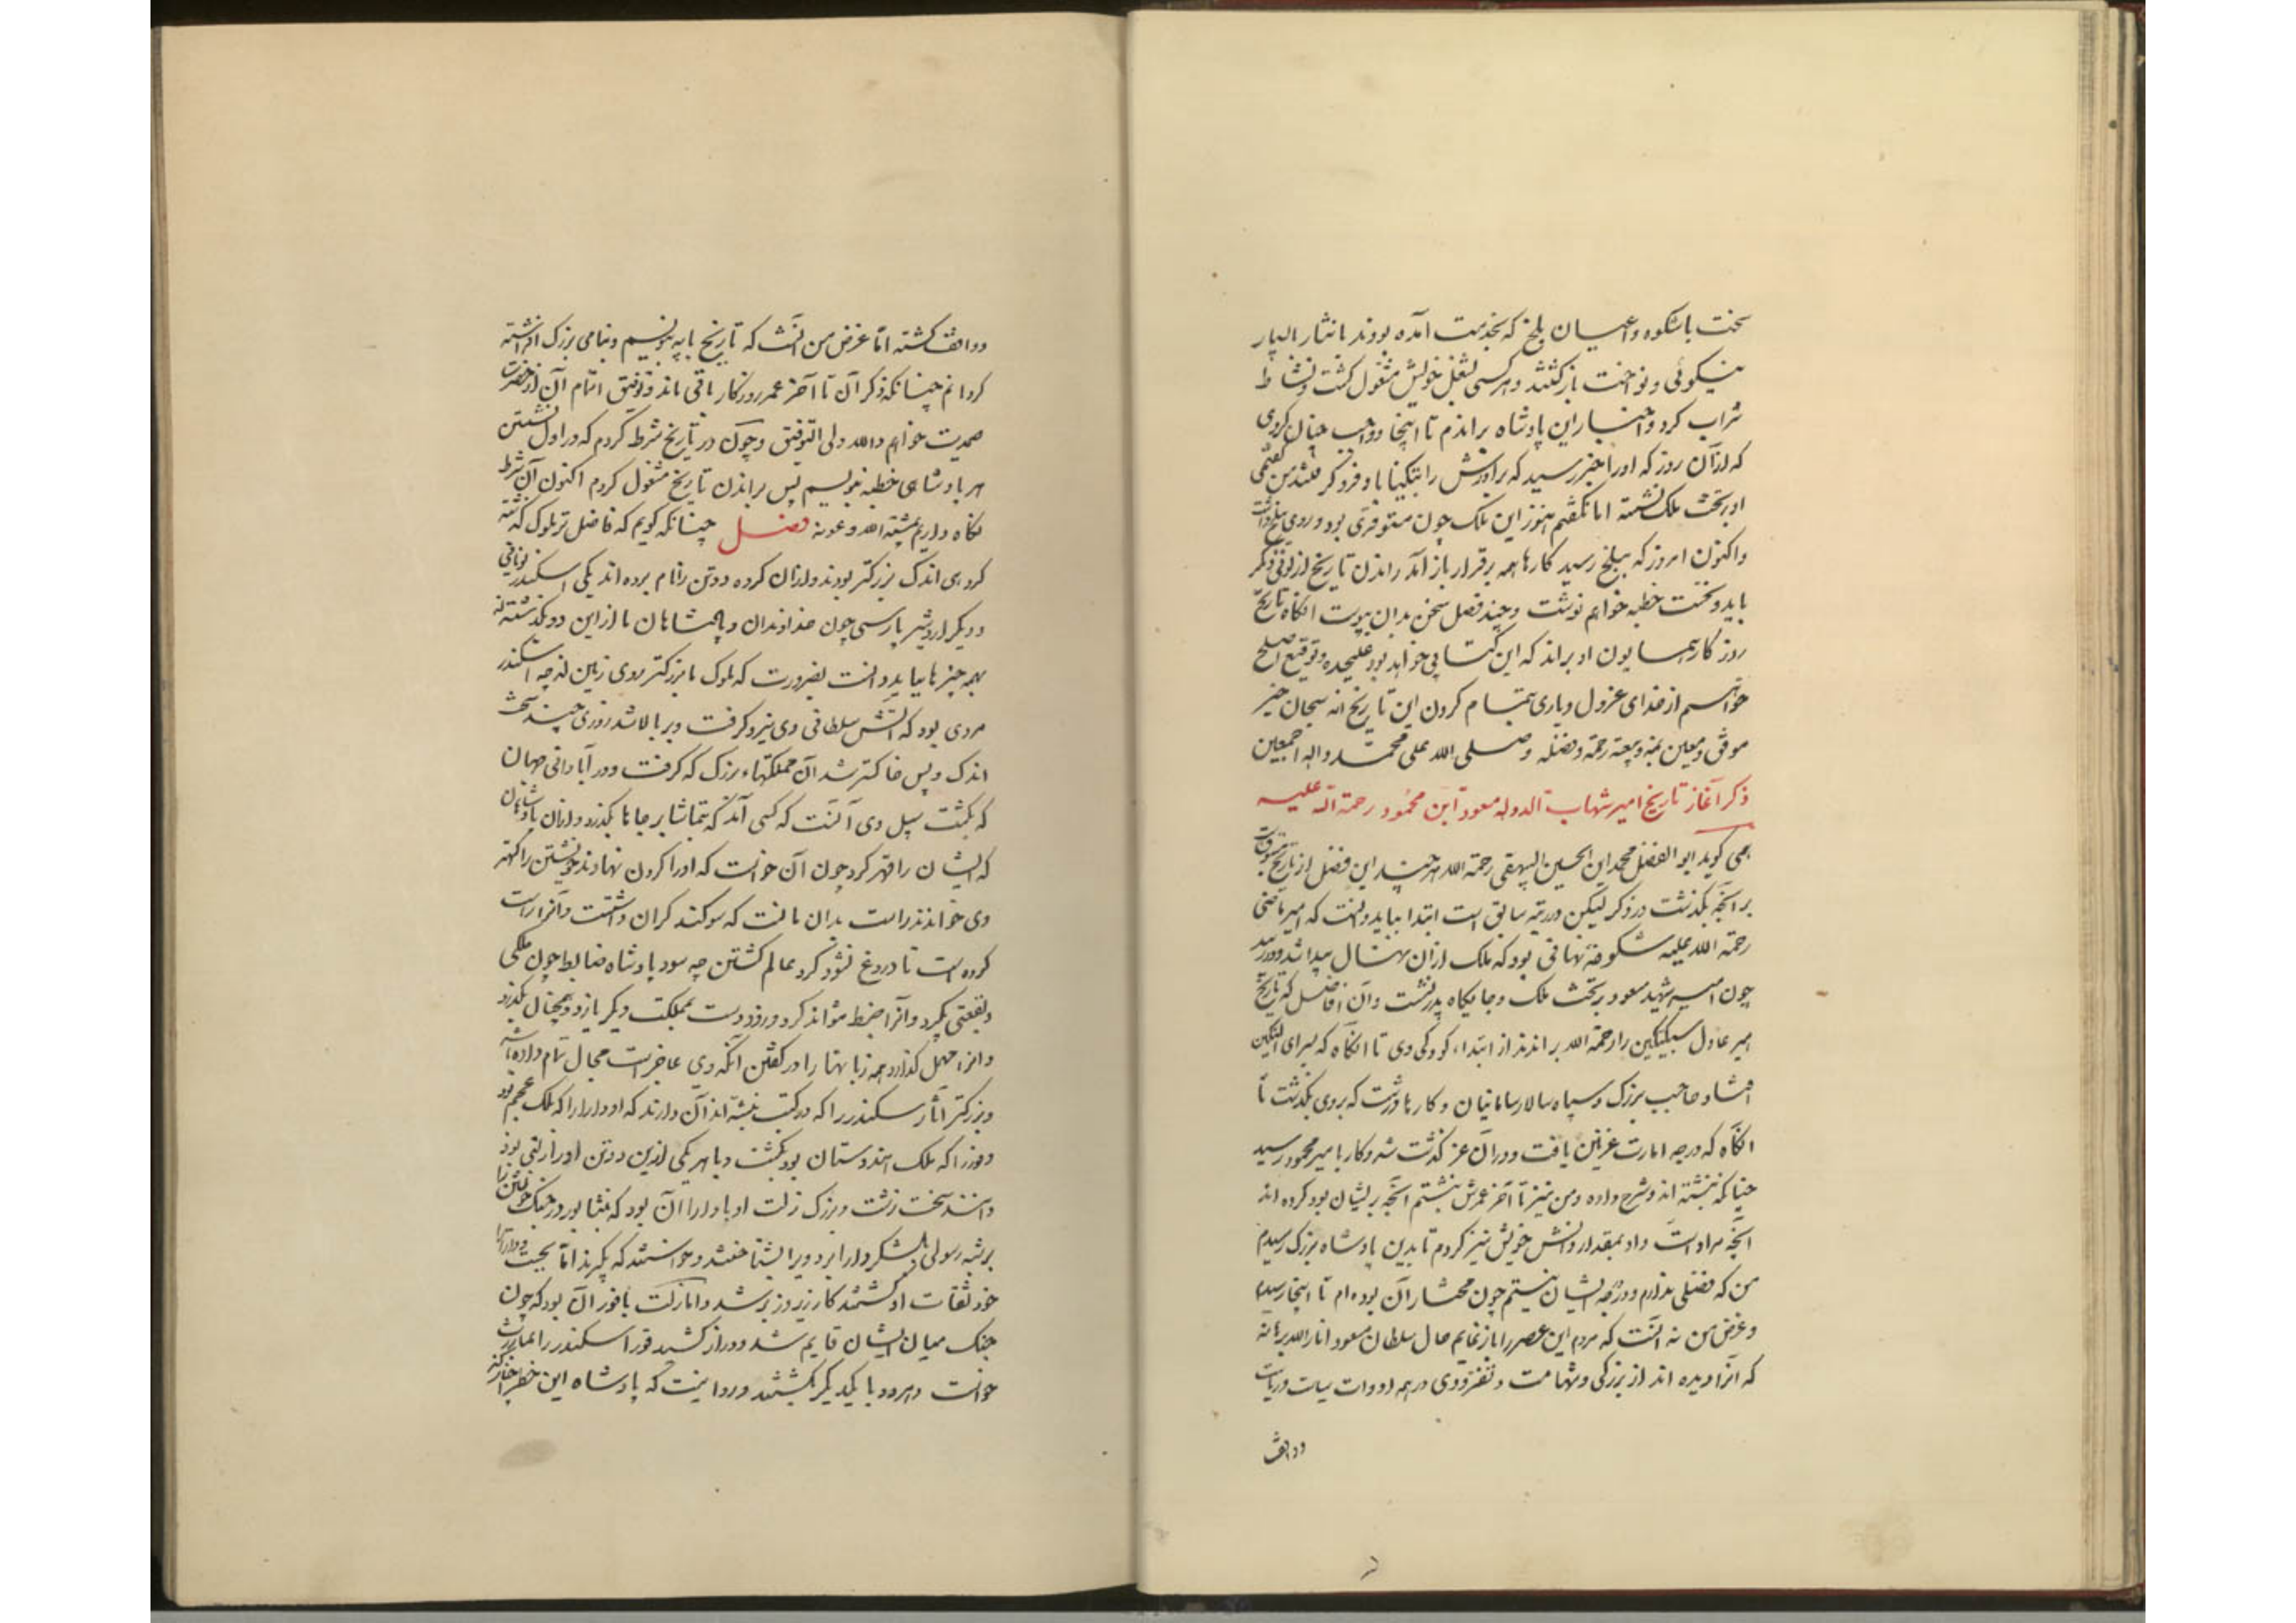 سخت باشکوه و اعیان بلخ که بخدمت آمده بودند با نثار الپار
بنیکوئی و نواخت بازکشتند و هر کسی بشغل خویش مشغول کشت و نشاط
شراب کرد و اخبار این پادشاه براندم تا اینجا و واجب چنان کردی
که از آن روز که او را خبر رسید که برادرش را بتکیناباد فرو کرفتند من کفتمی
او بر تخت ملک نشسته اما نکفتم هنوز این ملک چون مستوفزی بود و روی ببلخ داشت
و اکنون امروز که ببلخ رسید کارها همه برقرار باز آمد راندن تاریخ از لونی دیگر
باید و نخست خطبه خواهم نوشت و چند فصل سخن بدان پیوست انکاه تاریخ
روزکار همایون او براند که این کتابی خواهد بود علیحده و توفیق اصلح
خواهیم از خدای عزوجل و یاری بتمام کردن این تاریخ انه سبحان خیر
موفق و معین بمنه و سعة رحمة و فضله و صلی الله علی محمد و اله اجمعین
ذکر آغاز تاریخ امیر شهاب الدوله مسعود ابن محمود رحمة الله علیه
همی کوید ابو الفضل محمد ابن الحسین البیهقی رحمة الله هر چند این فضل از تاریخ مسبوقست
بر آنچه بکذشت در ذکر لیکن در رتبه سابق است ابتدا بباید دانست که امیر ماضی
رحمة الله علیه شکوفه نهانی بود که ملک از آن نهال پیدا شد و در رسید
چون امیر شهید مسعود بر تخت ملک و جایکاه پدر نشست و آن افاضل که تاریخ
امیر عادل سبکتکین را رحمة الله براندند از ابتداء کودکی وی تا انکاه که بسرای البتکین
افتاد و حاجب بزرک و سپاه سالار سامانیان و کارهاء درشت که بروی بکذشت تا
انکاه که درجه امارت غزنین یافت و در آن عز کذشته شد و کار با میر محمود رسید
چنانکه نبشته اند و شرح داده و من نیز تا آخر عمرش نبشتم آنچه بر ایشان بود کرده اند
آنچه مراد است داد بمقدار دانش خویش نیز کردم تا بدین پادشاه بزرک رسیدم
من که فضلی ندارم و در درجه ایشان نیستم چون مجتازان بوده ام تا اینجا رسیدم
و غرض من نه آنست که مردم این عصر را باز نمایم حال سلطان مسعود انار الله برهانه
که انرا دیده اند از بزرکی و شهامت و تفرد وی در همه ادوات سیاست و ریاست
و واقف
و واقف کشته اما غرض من آنست که تاریخ پایه بنویسم و بنامی بزرک افراشته
کردانم چنانکه ذکر آن تا آخر عمر روزکار باقی ماند و توفیق اتمام آن از حضرت
صمدیت خواهم و الله ولی التوفیق و چون در تاریخ شرط کردم که در اول نشستن
هر پادشاهی خطبه بنویسم پس براندن تاریخ مشغول کردم اکنون آن شرط
نکاه دارم بمشیة الله و عونه فصل چنانکه کویم که فاضل تر ملوک کذشته
کروهی اند که بزرکتر بودند و از آن کروه دو تن را نام برده اند یکی اسکندر یونانی
و دیکر اردشیر پارسی چون خداوندان و پادشاهان ما از این دو بکذشته اند
بهمه چیزها بباید دانست بضرورت که ملوک ما بزرکتر روی زمین از چه اسکندر
مردی بود که آتش سلطانی وی نیرو کرفت و بر بالا شد روزی چند سخت
اندک و پس خاکستر شد آن مملکتهاء بزرک که کرفت و در آبادانی جهان
که بکشت سپیل وی آنست که کسی آید که بتماشا بر جاها بکذرد و از آن پادشاهان
که ایشان را قهر کرد چون آن خواست که او را کردن نهادند و خویشتن را کهتر
وی خواندند راست بدان مانست که سوکند کران داشتست و آنرا راست
کرده است تا دروغ نشود کرد عالم کشتن چه سود پادشاه ضابط چون ملکی
و بقعتی بکیرد و آنرا ضبط نتواند کرد و زود دست بمملکت دیکر یازد و همچنان بکذرد
و انرا مهمل کذارد همه زبانها را در کفتن آنکه وی عاجز است مجال تمام داده باشد
و بزرکتر آثار سکندر را که در کتب نبشته اند آن دارند که او دارا را که ملک عجم بود
و فور را که ملک هندوستان بود بکشت و با هر یکی ازین دو تن او را زلتی بود
دانند سخت زشت و بزرک زلت او با دارا آن بود که بنشابور در جنک خویشتن را
بر شبه رسولی بلشکر دارا برد ویرا بشناختند و خواستند که بکیرند اما بجست و دارا را
خود ثقات او کشتند کار زیر و زبر شد و اما زلت با فور آن بود که چون
جنک میان ایشان قایم شد و دراز کشید فور اسکندر را بمبارزت
خواست و هر دو با یکدیکر بکشتند و روا نیست که پادشاه این خطر اختیار کند